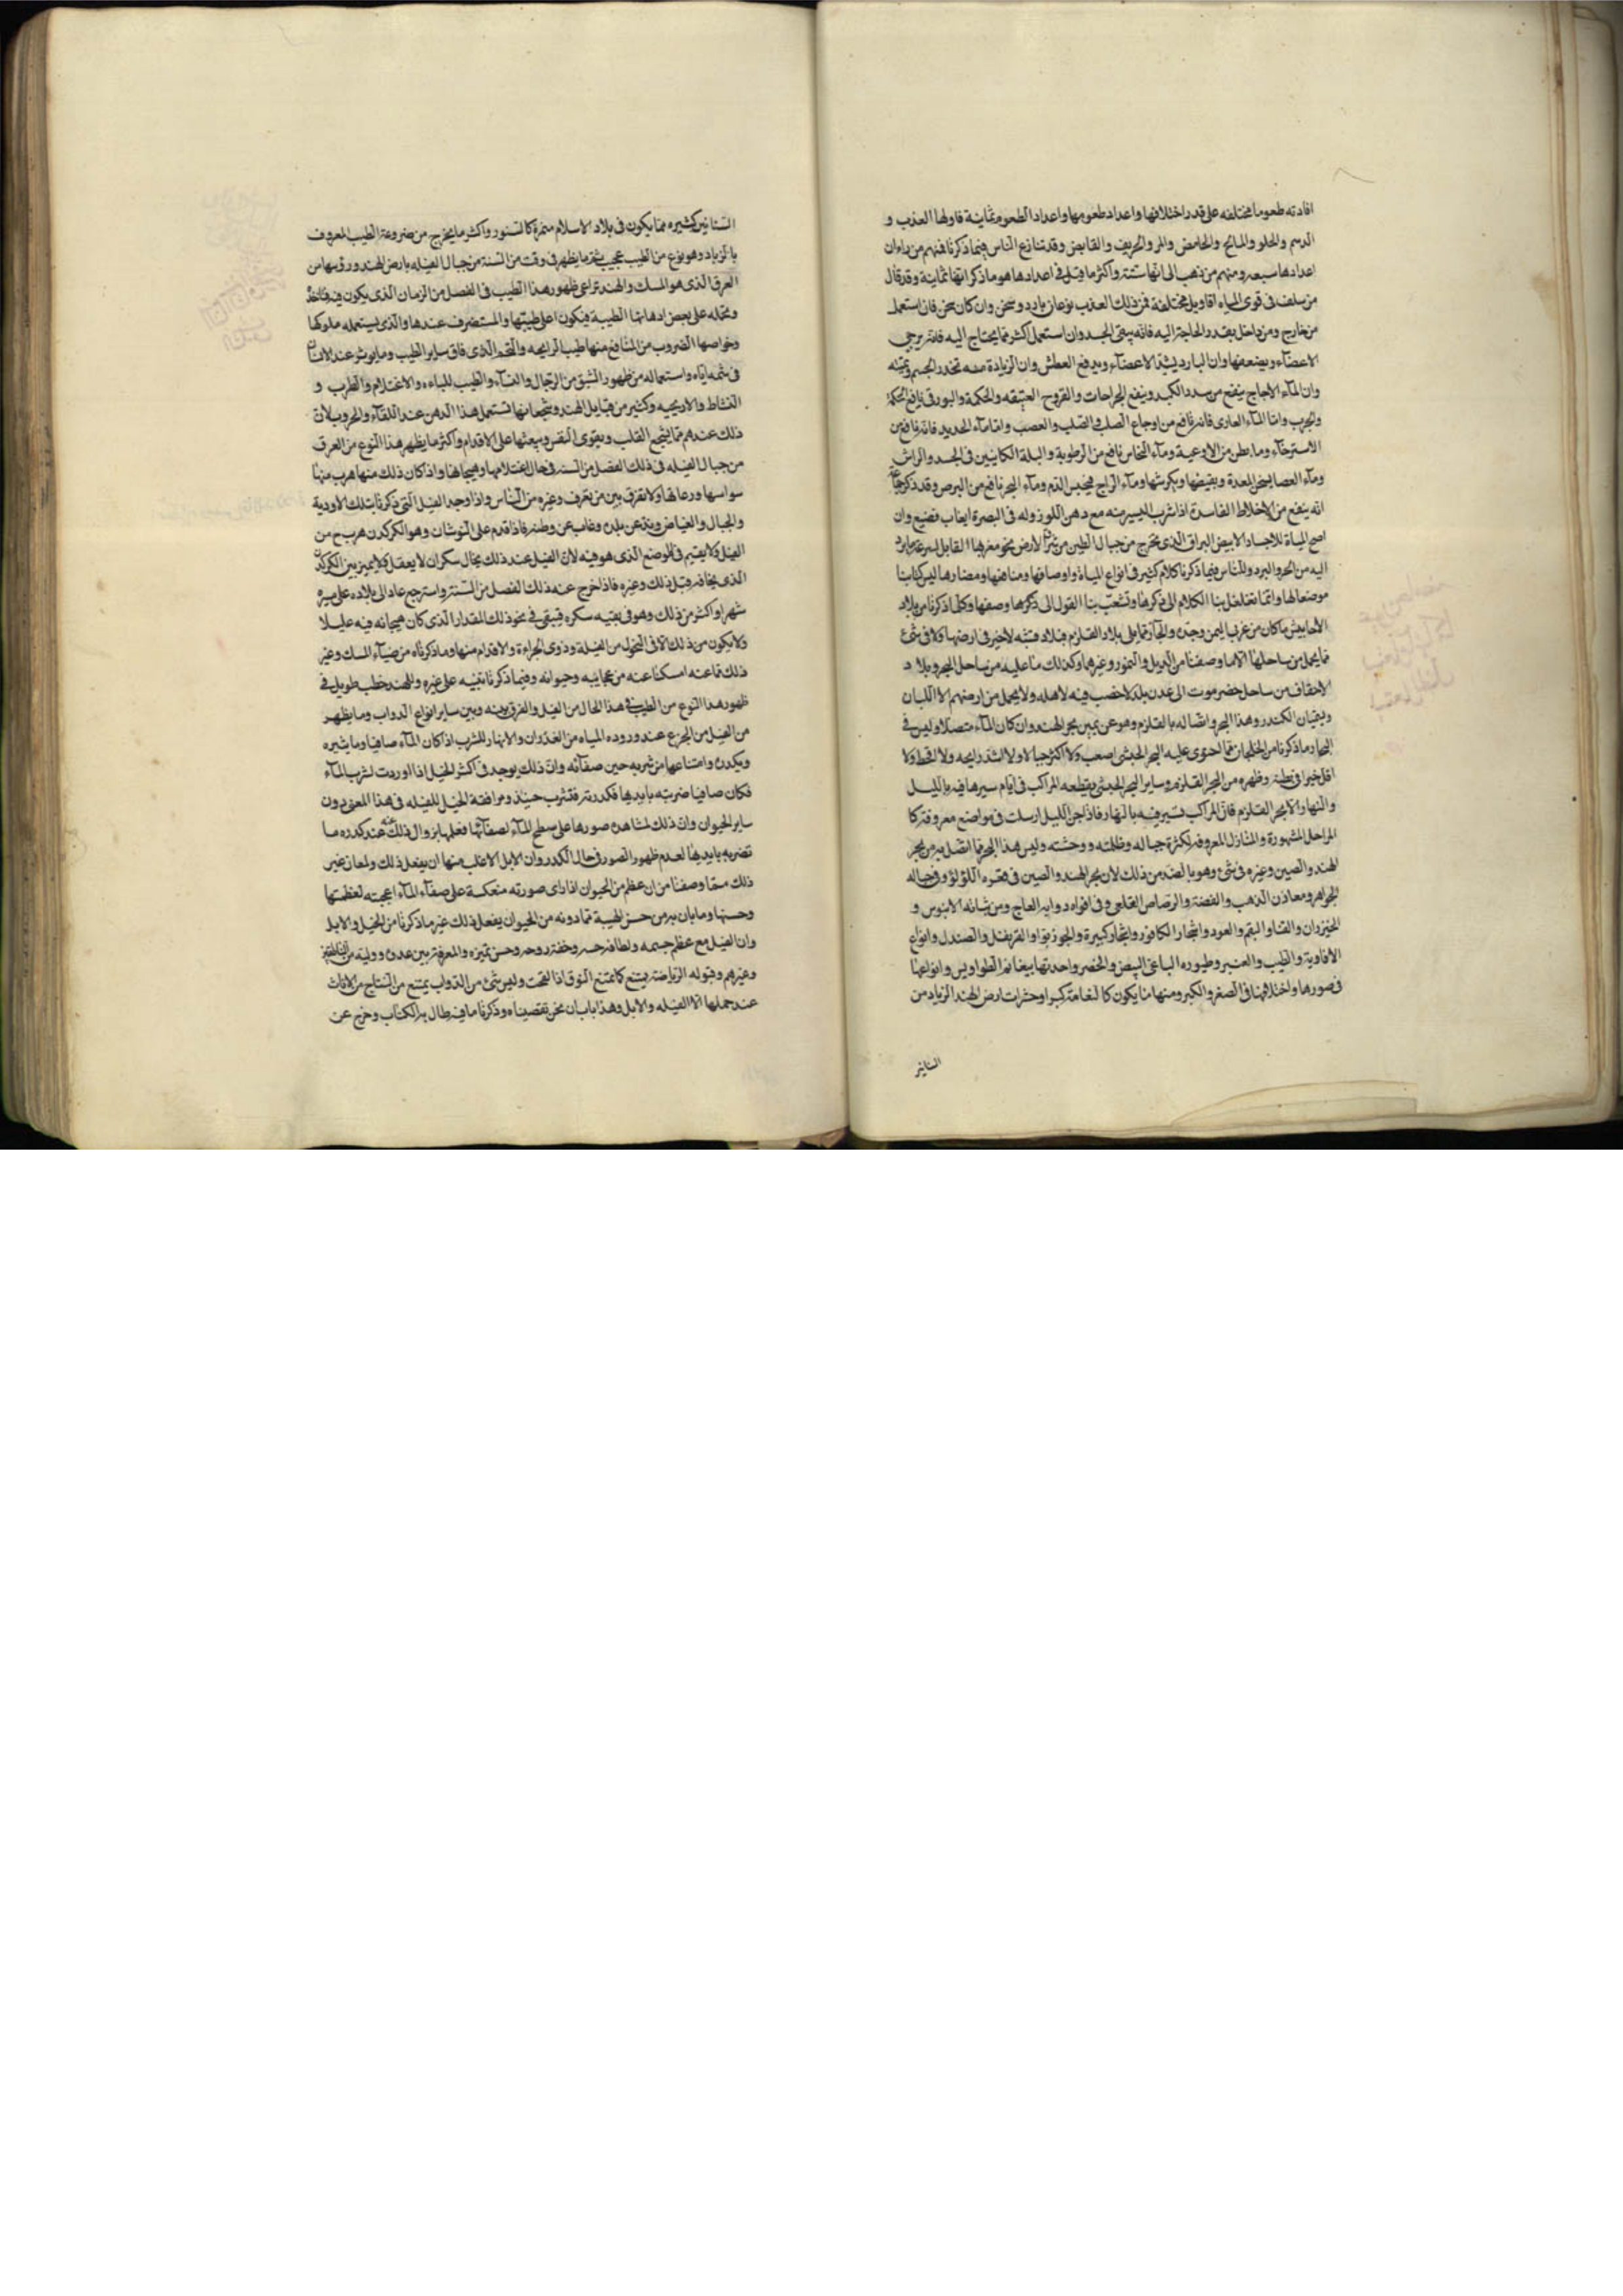 افادته طعوما مختلفه على قدر اختلافها واعداد طعومها واعداد الطعوم ثمانية فاولها العذب و
الدسم والحلو والمالح والحامض والمر والحريف والقابض وقد تنازع الناس فيما ذكرنا فمنهم من راى ان
اعدادها سبعه ومنهم من ذهب الى انها ستة واكثر ما قيل فى اعدادها هو ما ذكر انها ثمانية وقد قال
من سلف فى قوى المياه اقاويل مختلفة فمن ذلك العذب نوعان بارد وسخن وان كان سخن فان استعمل
من خارج ومن داخل بقدر الحاجة اليه فانه ينقى الجسد وان استعمل اكثر مما يحتاج اليه فانه يرخى
الاعضاء ويضعفها وان البارد يشد الاعضآء ويدفع العطش وان الزيادة منه تخدر الجسم وتميته
وان المآء الاجاج ينفع من سدد الكبد وينفع الجراحات والقروح العتيقه والحكة والبورقى نافع للحكة
والجرب واما المآء القارى فانه نافع من اوجاع الصلب والعصب واما مآء الحديد فانه نافع من
الاسترخآء وما بطن من الاوعية ومآء النحاس نافع من الرطوبة والبلة الكاينين فى الجسد والراس
ومآء الجص يقبض المعدة ويقبضها ويكرشها ومآء الزاج يحبس الدم ومآء البحر نافع من البرص وقد ذكر جماعة
انه ينفع من الاخلاط الفاسدة اذا شرب اليسير منه مع دهن اللوز وله فى البصرة
اصح المياة للاجساد الابيض البراق الذى يخرج من جبال الطين من شرق الارض نحو مغربها القابل لسرعة ما يرد
اليه من الحر والبرد وللناس فيما ذكرنا كلام كثير فى انواع المياة واوصافها ومنافعها ومضارها ليس كتابنا
موضعا لها وانما تغلغل بنا الكلام الى ذكرها وتشعب بنا القول الى ذكرها وصفها وكلما ذكرنا من بلاد
الاحابيش ما كان من غرب اليمن وجدة والحجاز مما يلى بلاد القلزم فبلاد قشفه لا خير فى ارضها ولا فى شئ
مما يحمل من ساحلها الا ما وصفنا من الذبل والنمور وغيرهما وكذلك ما عليه من ساحل البحر وبلاد
الاحقاف من ساحل حضرموت الى عدن بلد لا خصب فيه لاهله ولا يحمل من ارضهم الا اللبان
وبقيان الكندر وهذا البحر واتصاله بالقلزم وهو عن يمين بحر الهند وان كان المآء متصلا وليس فى
البحار وما ذكرنا من الخلجان مما احتوى عليه البحر الحبشى اصعب ولا اكثر جبالا ولا انتن رايحه ولا اقحط ولا
اقل خيرا فى بطنه وظهره من البحر القلزمى وساير البحر الحبشى تقطعه المراكب فى ايام سيرها فيه بالليل
والنهار الا بحر القلزم فان المراكب تسير فيه بالنهار فاذا جن الليل ارسلت فى مواضع معروفة كا
المراحل المشهورة والمنازل المعروفه لكثرة جباله وظلمته ووحشته وليس هذا البحر مما اتصل به من بحر
الهند والصين وغيره فى شئ وهو بالضد من ذلك لان بحر الهند والصين فى قعره اللؤلؤ وفى جباله
الجواهر ومعادن الذهب والفضة والرصاص القلعى وفى افواه دوابه العاج ومن شانه الابنوس و
الخيزران والقنا والبقم والعود واشجار الكافور واشجار كبيرة والجوز بوا والقرنفل والصندل وانواع
الافاوية والطيب والعنبر وطيوره الباغى البيض والخضر واحدتها ببغا ثم الطواويس وانواعها
فى صورها واختلافها فى الصغر والكبر ومنها ما يكون كالنعامة كبرا وحشرات ارض الهند الزياد من
السنانير
السنانير كثيره مما يكون فى بلاد الاسلام منمرة كالسنور واكثر ما يخرج من ضروعه الطيب المعروف
بالزياد وهو نوع من الطيب عجيب ثم ما يظهر فى وقت من السنة من جبال الفيله بارض الهند ورؤسها من
العرق الذى هو المسك والهند تراعى ظهور هذا الطيب فى الفصل من الزمان الذى يكون فيه فتاخذه
وتحمله على بعض ادهانها الطيبة فيكون اعلى طيبها والمستضرف عندها والذى يستعمله ملوكها
وخواصها الضروب من المنافع منها طيب الرايحه والتخم الذى فاق ساير الطيب وما يوثر عند الانسان
فى شمه اياه واستعماله من ظهور الشبق من الرجال والنسآء والطيب للباءه والاغتلام والطرب و
النشاط والاريحيه وكثير من قبايل الهند وشجعانها تستعمل هذا الدهن عند اللقآء والحروب لان
ذلك عندهم مما يشجع القلب ويقوى النفس ويبعثها على الاقدام واكثر ما يظهر هذا النوع من العرق
من جبال الفيله فى ذلك الفصل من السنه فى حال اغتلامها وهيجانها واذا كان ذلك منها هرب منها
سواسها ورعاتها ولا تفرق بين من يعرف وغيره من الناس واذا وجد الفيل التى ذكرنا بتلك الاودية
والجبال والغياض وند عن بلده وغاب عن وطنه فاذا قدم على النوشان وهو الكركدن هرب ح من
الفيل ولا يقيم فى الموضع الذى هو فيه لان الفيل عند ذلك بحال سكران لا يعقل ولا يميز بين الكركدن
الذى يخافه قبل ذلك وغيره فاذا خرج عنه ذلك الفصل من السنة واسترجع عاد الى بلاده على مسيرة
شهر او اكثر من ذلك وهو فى بقيه سكره فيبقى فى نحو ذلك المقدار الذى كان هيجانه فيه عليلا
ولا يكون من ذلك الا فى الفحول من الفيلة وذوى الجراءة والاقدام منها وما ذكرناه من ضيآء المسك وغير
ذلك مما عنه امسكنا عنه من عجايبه وحيوانه وفيما ذكرنا تنبيه على غيره وللهند خطب طويل فى
ظهور هذا النوع من الطيب فى هذا الحال من الفيل والفرق بينه وبين ساير انواع الدواب وما يظهر
من الفيل من الجزع عند وروده المياه من الغدران والانهار للشرب اذا كان المآء صافيا وما يثيره
ويكدره وامتناعها من شربه حين صفآئه وان ذلك يوجد فى اكثر الخيل اذا اوردت لشرب المآء
فكان صافيا ضربته بايديها فكدرته فتشرب حينئذ ومرافقة الخيل للفيله فى هذا المعنى دون
ساير الحيوان وان ذلك لمشاهدة صورها على سطح المآء لصفآئها فعلمها بزوال ذلك عنه عند كدره ما
تضربه بايديها لعدم ظهور الصور فى حال الكدر وان الابل الاغلب منها ان يفعل ذلك ولمعان غير
ذلك مما وصفنا من ان عظم من الحيوان اذا راى صورته منعكسة على صفآء المآء اعجبته لعظمتها
وحسنها وما بان به من حسن الهيبة مما دونه من الحيوان يفعل ذلك غير ما ذكرنا من الخيل والابل
وان الفيل مع عظم جسمه ولطافه حسه وخفة روحه وحسن تميزه والمعرفة بين عدوه ووليه من الناطقين
وغيرهم وقبوله الرياضة يمتنع كما تمتنع النوق اذا لقحت وليس شئ من الدواب يمتنع من النتاج من الاناث
عند حملها الا الفيله والابل وهذا باب ان نحن تقصيناه وذكرنا ما فيه طال به الكتاب وخرج عن